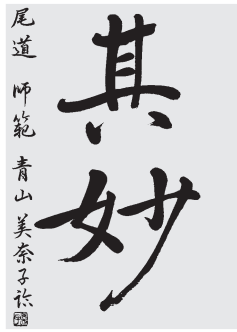 其妙
尾道 師範 青山 美奈子